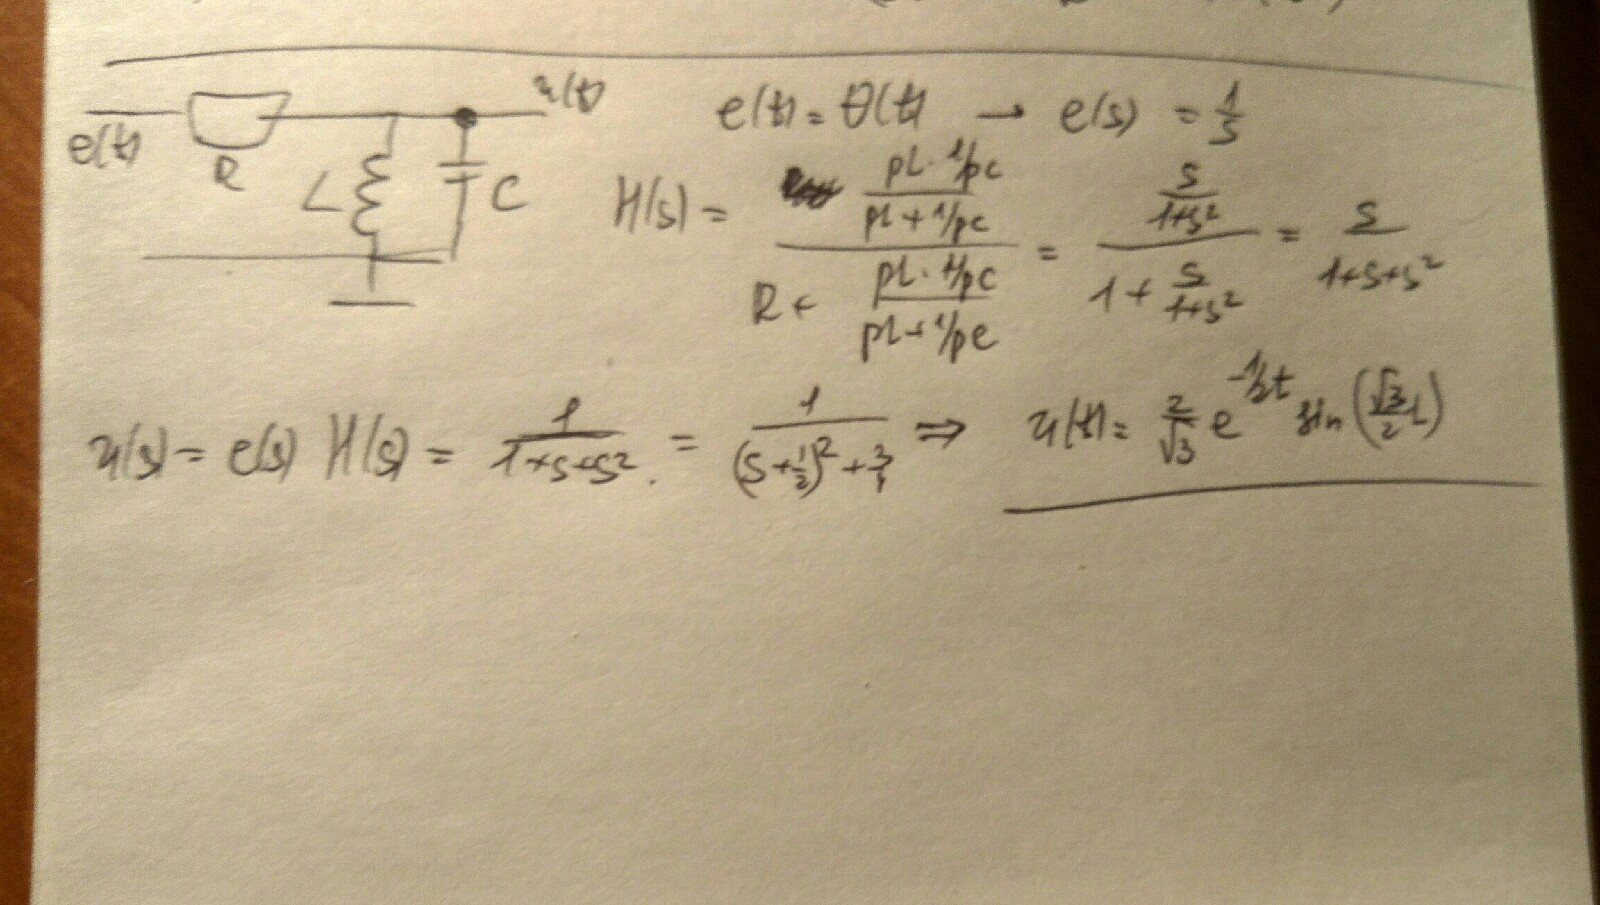 e(t) R L C u(t)
e(t) = θ(t) → e(s) = 1/s
H(s) = (pL · 1/pC)/(pL + 1/pC) / (R + (pL · 1/pC)/(pL + 1/pC)) = (s/(1+s²))/(1 + s/(1+s²)) = s/(1+s+s²)
u(s) = e(s) H(s) = 1/(1+s+s²) = 1/((s+1/2)² + 3/4) ⇒ u(t) = 2/√3 e^(-1/2t) sin(√3/2 t)